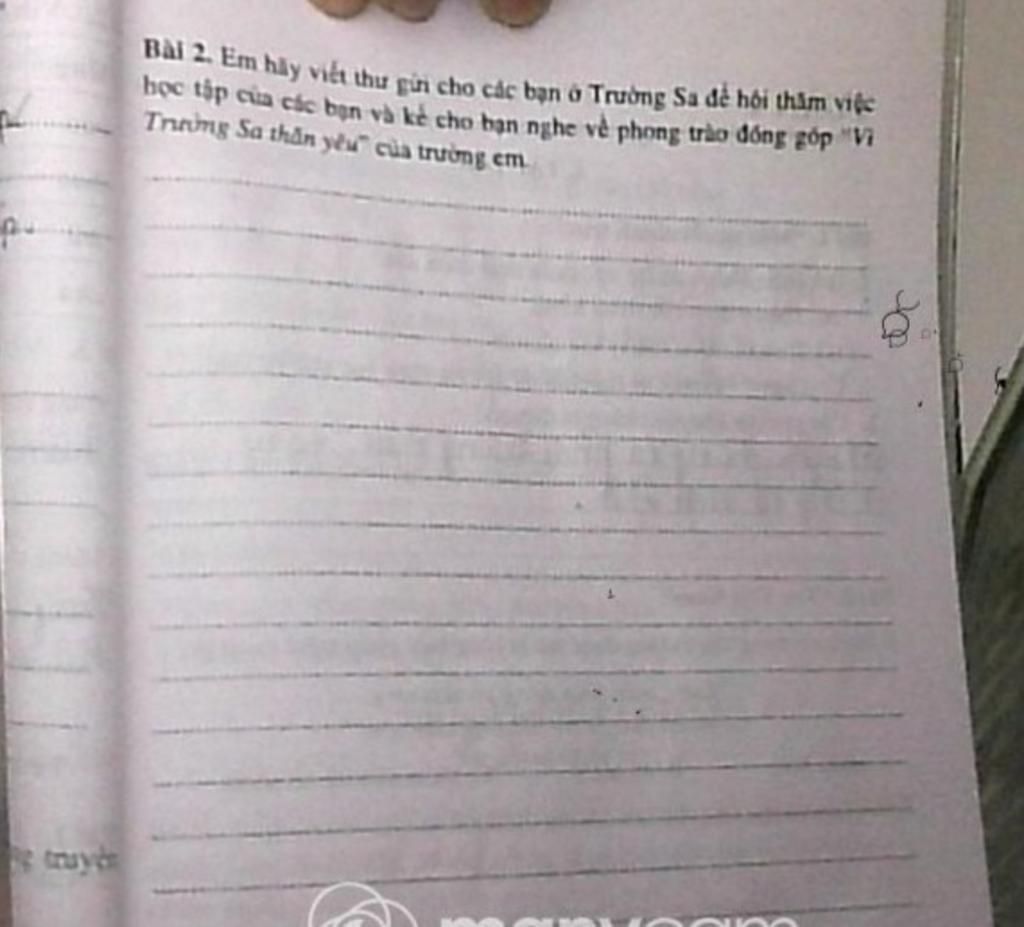 Bài 2. Em hãy viết thư gửi cho các bạn ở Trường Sa để hỏi thăm việc
học tập của các bạn và kể cho bạn nghe về phong trào đóng góp "Vì
Trường Sa thân yêu" của trường em.
truyện
manycam